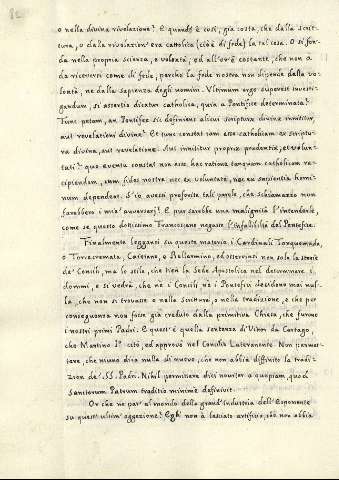 o nella divina rivolazione? E quando è così, già costa, che dalla scrit-
tura, o dalla rivolazion' era cattolica (cioè di fede) la tal cosa. O si fon-
da nella propria scienza, e volontà, ed allor'è costante, che non a
da riceversi come di fede, perchè la fede nostra non dipende dalla vo-
lontà, ne dalla sapienza degli uomini. Ultimum ergo superest investi-
gandum, si assertio dicatur catholica, quia a Pontifice determinata?
Tunc petam, an Pontifex sic definiens alicui scripturae divinae innititur,
aut revelationi divinae? Et tunc constat eam esse catholicam ex scriptu-
ra divina, aut revelatione. Aut innititur propriae prudentiae, et volun-
tati? quo eventu constat non esse, hac ratione tanquam catholicam re-
cipiendam, cum fides nostra nec ex voluntate, nec ex sapientia homi-
num dependeat. S'io avessi proferite tali parole, che schiamazzo non
farebbero i miei avversarj! E pur sarebbe una malignità l'intenderle,
come se questo dottissimo Francescano negasse l'infallibilità del Pontefice.
Finalmente leggansi su questa materia i Cardinali Torquemada,
o Torrecremata, Caietano, e Bellarmino, ed osservinsi non solo la storia
de' Concilj, ma lo stile, che tien la Sede Apostolica nel determinare i
dommi, e si vedrà, che nè i Concilj nè i Pontefici decidono mai nul-
la, che non si trovasse o nella scrittura, o nella tradizione, e che per
conseguenza non fosse già creduto dalla primitiva Chiesa, che furono
i nostri primi Padri. E quest'è quella sentenza di Vitor da Cartago,
che Martino I° citò, ed approvò nel Concilio Lateranente. Non permet-
tere, che niuno dica nulla di nuovo, che non abbia diffinito la tradi-
zion de' SS. Padri. Nihil permittere dici noviter a quopiam, quod
Sanctorum Patrum traditio minimè definivit.
Or che ne par' al mondo della grand'industria dell'Esponente
su quest'ultim'oggezione? Egli non à lasciato artificio, che non abbia